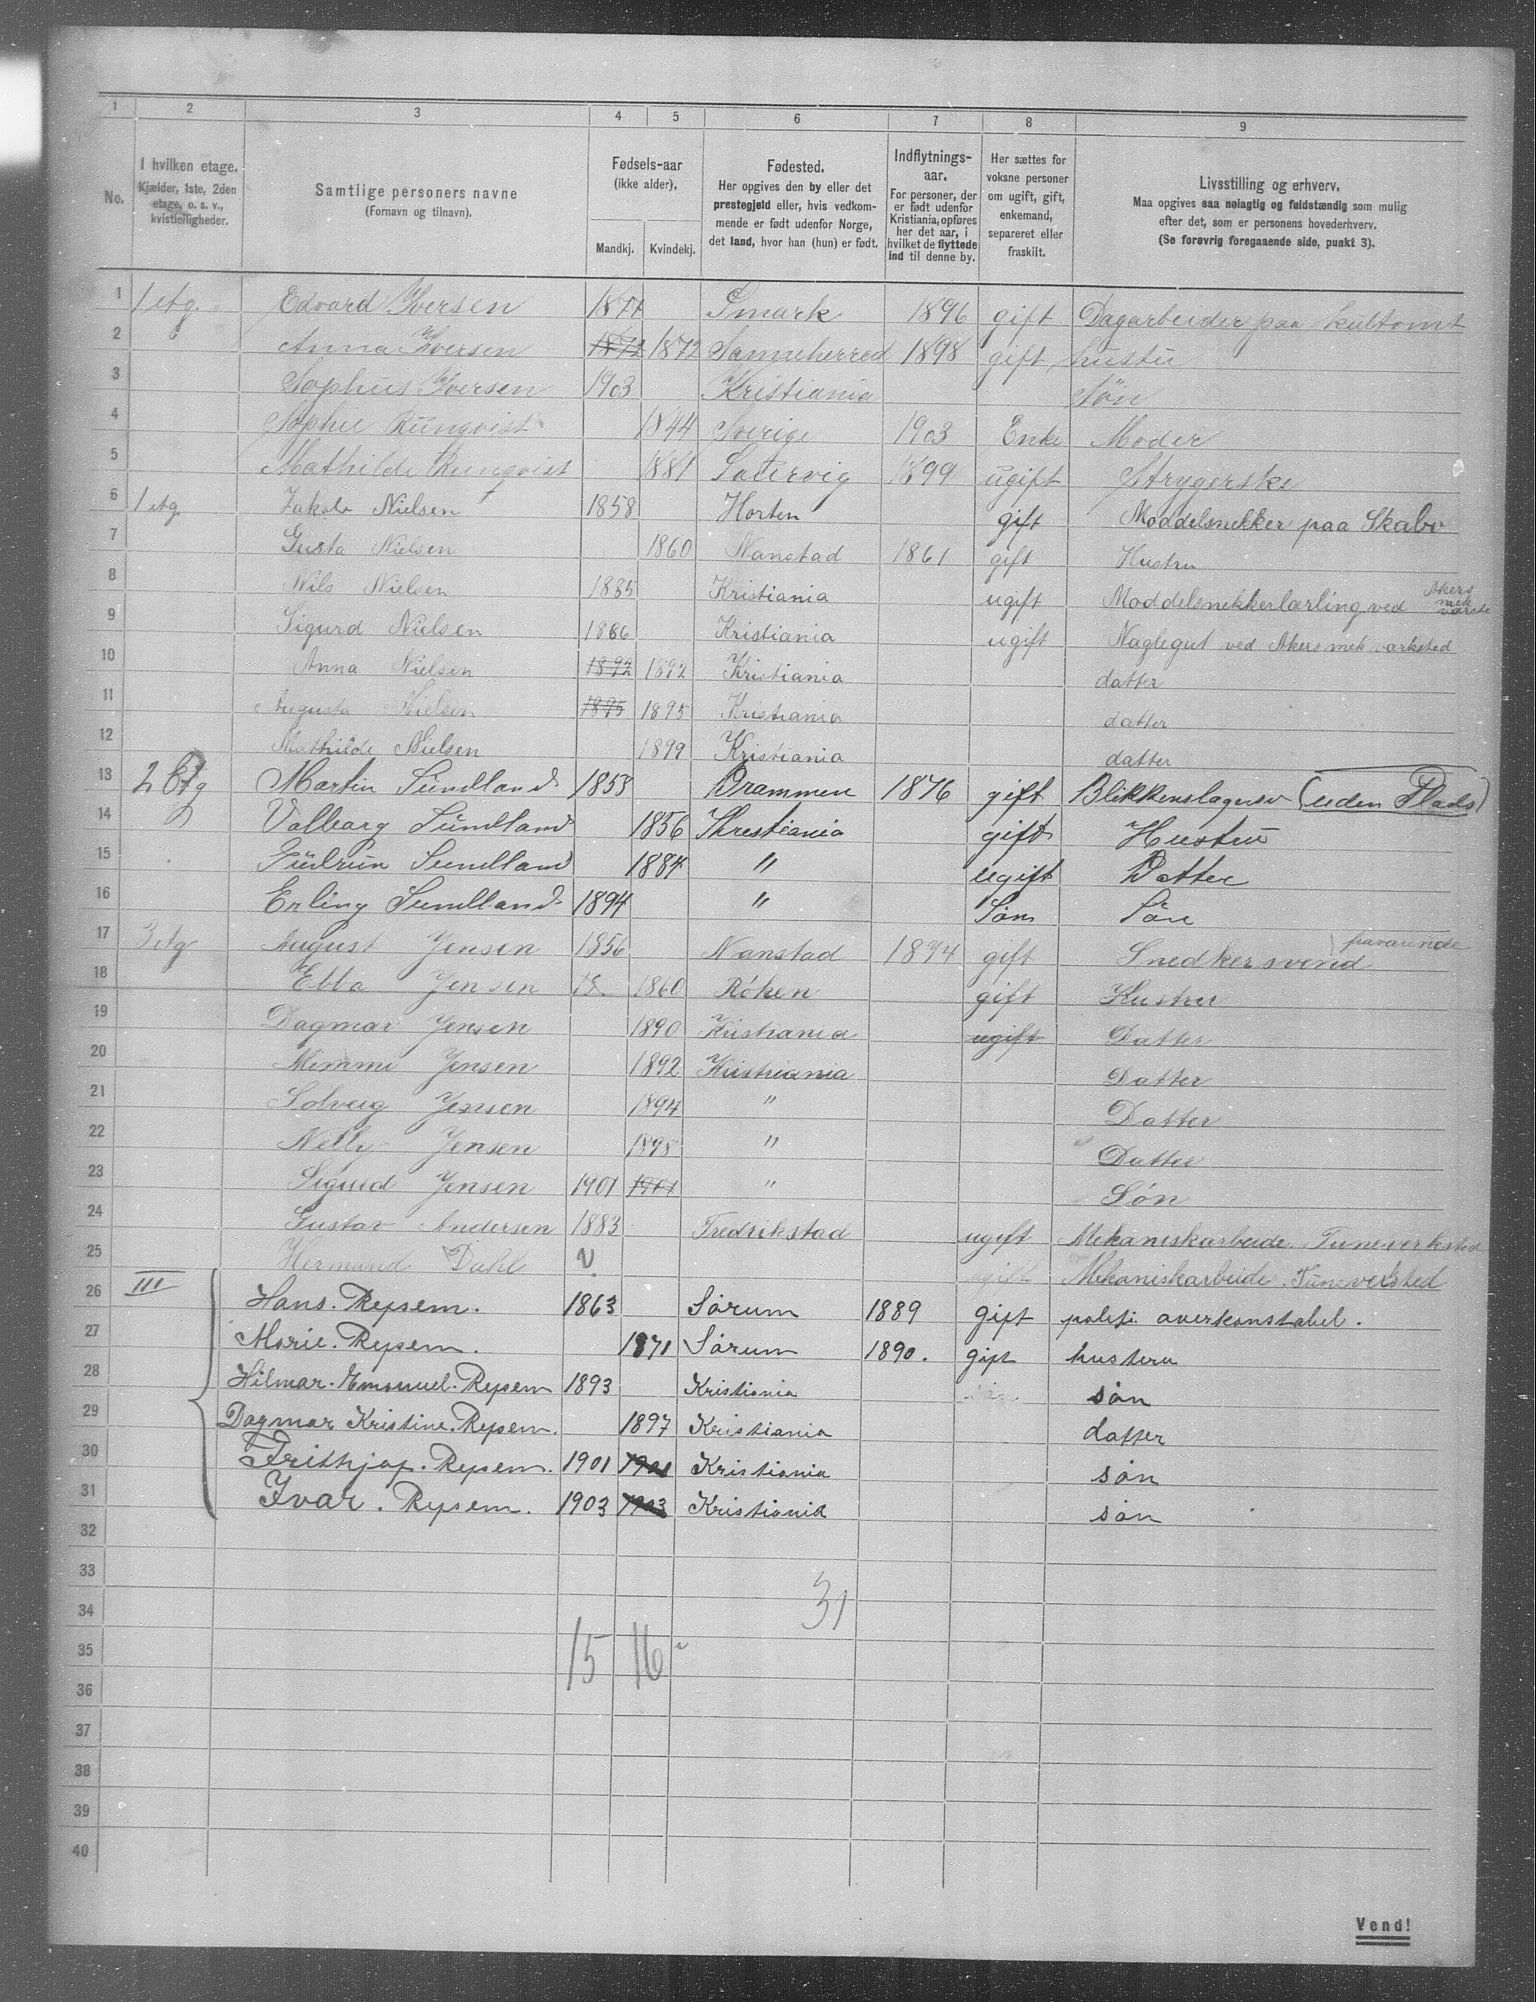 1 2 3 4 5 6 7 8 9
No.
I hvilken etage.
Kjælder, 1ste, 2den
etage, o. s. v.,
kvistleiligheder.
Samtlige personers navne
(Fornavn og tilnavn).
Fødsels-aar
(ikke alder).
Mandkj. Kvindekj.
Fødested.
Her opgives den by eller det
prestegjeld eller, hvis vedkom-
mende er født udenfor Norge,
det land, hvor han (hun) er født.
Indflytnings-
aar.
For personer, der
er født udenfor
Kristiania, opføres
her det aar, i
hvilket de flyttede
ind til denne by.
Her sættes for
voksne personer
om ugift, gift,
enkemand,
separeret eller
fraskilt.
Livsstilling og erhverv.
Maa opgives saa nøiagtig og fuldstændig som mulig
efter det, som er personens hovederhverv.
(Se forøvrig foregaaende side, punkt 3).
1 1 etg. Edvard Iversen 1871 1896 gift Dagarbeider paa
2 Anna Iversen 1872 1872 Sanneherred 1898 gift hustru
3 Sophus Iversen 1903 Kristiania Søn
4 Sophie Runqvist 1844 Sverige 1903 Enke Moder
5 Mathilde Runqvist 1881 1899 ugift Strygerske
6 1 etg. Jakob Nielsen 1858 Horten gift Moddelsnekker paa Skabo
7 Gusta Nielsen 1860 Nanstad 1861 gift Hustru
8 Nils Nielsen 1885 Kristiania ugift Moddelsnekkerlærling ved Akers mek
9 Sigurd Nielsen 1886 Kristiania ugift Naglegut ved Akers mek varksted
10 Anna Nielsen 1892 1892 Kristiania datter
11 Augusta Nielsen 1895 1895 Kristiania datter
12 Mathilde Nielsen 1899 Kristiania datter
13 2 Etg Martin Sundland 1853 Drammen 1876 gift Blikkenslager (uden Plads)
14 Valborg Sundland 1856 Kristiania gift Hustru
15 Gudrun Sundland 1884 " ugift Datter
16 Erling Sundland 1894 " Søn Søn
17 3 etg August Jensen 1856 Nanstad 1874 gift Snedkersvend
18 Ebba Jensen 18 1860 Røken gift Hustru
19 Dagmar Jensen 1890 Kristiania ugift Datter
20 Mimmi Jensen 1892 Kristiania Datter
21 Solveig Jensen 1894 " Datter
22 Nelly Jensen 1898 " Datter
23 Sigurd Jensen 1901 1901 " Søn
24 Gustav Andersen 1883 Fredrikstad ugift Mekaniskarbeide. Tuneverksted
25 Hermand Dahl ugift Mekaniskarbeide. Tuneverksted
26 III Hans. Rysem. 1863 Sørum 1889 gift politi overkonstabel.
27 Marie. Rysem. 1871 Sørum 1890. gift hustru
28 Hilmar. Emanuel. Rysem 1893 Kristiania søn søn
29 Dagmar Kristine. Rysem. 1897 Kristiania datter
30 Frithjof. Rysem. 1901 1901 Kristiania søn
31 Ivar. Rysem. 1903 1903 Kristiania søn
32
33
34 31
35 15 16
36
37
38
39
40
Vend!